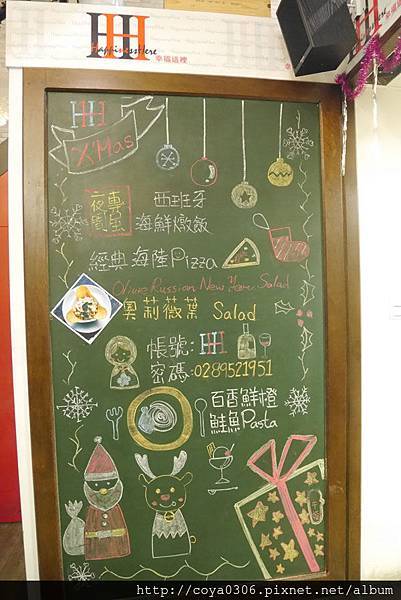 HH
HappinessHere
幸福這裡
HH
X'Mas
夜專
間屬
西班牙
海鮮燉飯
經典海陸Pizza
Olivie Russian New Year Salad
奧莉薇葉 Salad
帳號: HH
密碼:0289521951
百香鮮橙
鮭魚Pasta
http://coya0306.pixnet.net/album